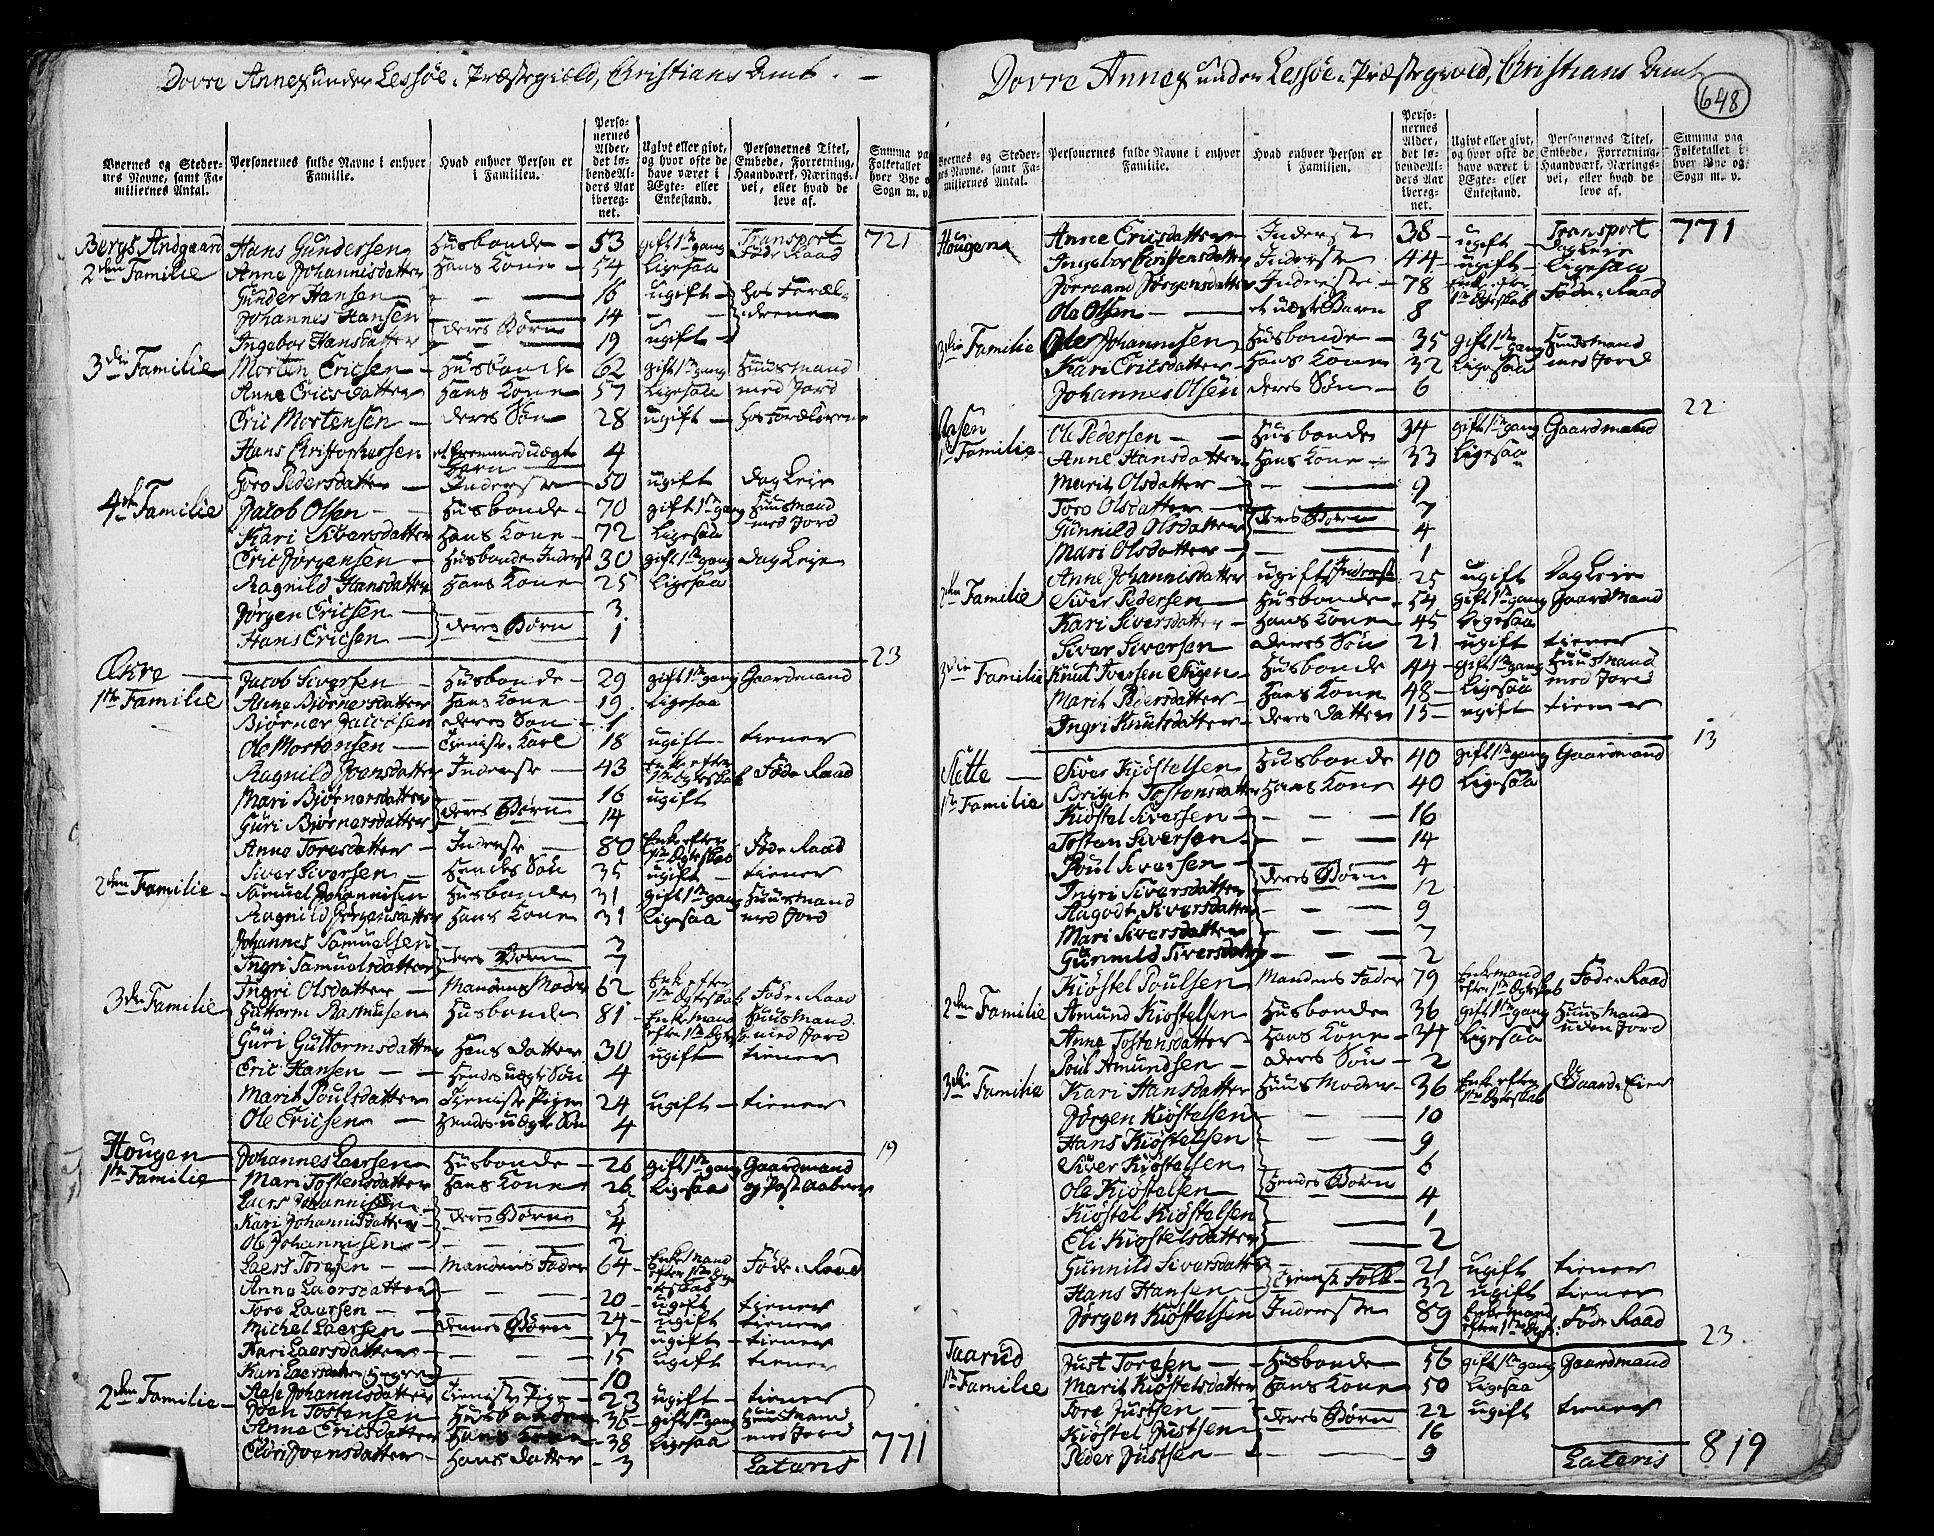 Dovre Annex under Lessøe Præstegield, Christians Amt. —
Byernes og Stedernes Navne, samt Familiernes Antal. | Personernes fulde Navne i enhver Familie. | Hvad enhver Person er i Familien. | Personernes Alder, det løbende Alders Aar iberegnet. | Ugivt eller givt, og hvor ofte de have været i Ægte- eller Enkestand. | Personernes Titel, Embede, Forretning, Haandværk, Næringsvei, eller hvad de leve af. | Summa paa Folketallet i hver Bye og Sogn m. v.
Bergs Andgaard Hans Gundersen Husbonde 53 gift 1te gang Transport Føde Raad 721
2den Familie Anne Johannisdatter Hans Kone 54 Ligesaa
Gunder Hansen 16 ugift hos Foræl-
Johannes Hansen deres Børn 14 drene
Ingebor Hansdatter 19 ugift
3die Familie Morten Ericsen Husbonde 62 gift 1te gang Huusmand
Anne Ericsdatter Hans Kone 57 Ligesaa med Jord
Eric Mortensen deres Søn 28 ugift hos Forældrene
Hans Christophersen et fremmed uægte Barn 4
Goro Pedersdatter Inderste 50 ugift DagLeie
4de Familie Jacob Olsen Husbonde 70 gift 1te gang Huusmand
Kari Siversdatter Hans Kone 72 Ligesaa med Jord
Eric Jørgensen Husbonde Inderst 30 gift 1te gang DagLeie
Ragnild Hansdatter Hans Kone 25 Ligesaa
Jørgen Ericsen 3
Hans Ericsen deres Børn 1
23
Økre Jacob Siversen Husbonde 29 gift 1te gang Gaardmand
1te Familie Anne Biørnersdatter Hans Kone 19 Ligesaa
Biørner Jacobsen deres Søn 1
Ole Mortensen Tieniste Karl 18 ugift tiener
Ragnild Joensdatter Inderste 43 Enke efter 1te Egteskab Føde Raad
Mari Biørnersdatter 16 ugift
Guri Biørnersdatter deres Børn 14
Anne Toresdatter Inderste 80 Enke efter 1te Egteskab Føde Raad
Siver Siversen Hendes Søn 35 ugift tiener
2den Familie Samuel Johannisen Husbonde 31 gift 1te gang Huusmand
Ragnild Jørgensdatter Hans Kone 31 Ligesaa med Jord
Johannes Samuelsen 3
Ingri Samuelsdatter deres Børn 7
Ingri Olsdatter Mandens Moder 62 Enke efter 1te Egteskab Føde Raad
3die Familie Guttorm Rasmusen Husbonde 81 Enkemand efter 1te Egtesk Huusmand med Jord
Guri Guttormsdatter Hans Datter 30 ugift tiener
Eric Hansen Hendes uægte Søn 4
Marit Poulsdatter Tieniste Pige 24 ugift tiener
Ole Ericsen Hendes uægte Søn 4
19
Hougen Johannes Laersen Husbonde 26 gift 1te gang Gaardmand
1te Familie Mari Tostensdatter Hans Kone 26 Ligesaa og Post Aabner
Laers Johannisen 5
Kari Johannisdatter deres Børn 4
Ole Johannisen 2
Laers Toresen Mandens Fader 64 Enkemand efter 1te Egteskab Føde Raad
Anne Laersdatter 20 ugift tiener
Tore Laersen 24 ugift tiener
Michel Laersen dennes Børn 17 ugift tiener
Kari Laersdatter 15 ugift tiener
Kari Laersdatter yngre 10
Aase Johannisdatter Tieniste Pige 23 ugift tiener
2den Familie Joen Tostensen Husbonde 36 gift 1te gang Huusmand
Anne Ericsdatter Hans Kone 38 Ligesaa med Jord
Joensdatter Hans Datter 3
Lateris 771
Dovre Annex under Lessøe Præstegield, Christians Amt
648
Byernes og Stedernes Navne, samt Familiernes Antal. | Personernes fulde Navne i enhver Familie. | Hvad enhver Person er i Familien. | Personernes Alder, det løbende Alders Aar iberegnet. | Ugivt eller givt, og hvor ofte de have været i Ægte- eller Enkestand. | Personernes Titel, Embede, Forretning, Haandværk, Næringsvei, eller hvad de leve af. | Summa paa Folketallet i hver Bye og Sogn m. v.
Hougene Anne Ericsdatter Inderste 38 ugift Transport DagLeie 771
Ingebor Christensdatter Inderste 44 ugift Ligesaa
Jorraand Jørgensdatter Inderste 78 Enke efter 1te Egteskab Føde Raad
Ole Olsen et uægte Barn 8
3die Familie Ole Johannisen Husbonde 35 gift 1te gang Huusmand
Kari Ericsdatter Hans Kone 32 Ligesaa med Jord
Johannes Olsen deres Søn 6
22
Aasen Ole Pedersen Husbonde 34 gift 1te gang Gaardmand
1te Familie Anne Hansdatter Hans Kone 33 Ligesaa
Marit Olsdatter 9
Toro Olsdatter 7
Gunnild Olsdatter deres Børn 4
Mari Olsdatter 1
Anne Johannisdatter ugift Inderst 25 ugift DagLeie
2den Familie Siver Pedersen Husbonde 54 gift 1te gang Gaardmand
Kari Siversdatter Hans Kone 45 Ligesaa
Siver Siversen deres Søn 21 ugift tiener
3die Familie Knut Iversen Husbonde 44 gift 1te gang Huusmand
Marit Pedersdatter Hans Kone 48 Ligesaa med Jord
Ingri Knutsdatter deres Datter 15 ugift tiener
13
Slette Siver Kiøstelsen Husbonde 40 gift 1te gang Gaardmand
1te Familie Brigit Tostensdatter Hans Kone 40 Ligesaa
Kiøstel Siversen 16
Tosten Siversen 14
Poul Siversen 4
Ingri Siversdatter deres Børn 12
Aagodt Siversdatter 9
Mari Siversdatter 7
Gunnild Siversdatter 2
Kiøstel Poulsen Mandens Fader 79 Enkemand efter 1te Egteskab Føde Raad
2den Familie Amund Kiøstelsen Husbonde 36 gift 1te gang Huusmand
Anne Tostensdatter Hans Kone 34 Ligesaa uden Jord
Poul Amundsen deres Søn 2
3die Familie Kari Hansdatter Huus Moder 36 Enke efter 1te Egteskab Gaard Eier
Jørgen Kiøstelsen 10
Hans Kiøstelsen 9
Siver Kiøstelsen 6
Ole Kiøstelsen Hendes Børn 4
Kiøstel Kiøstelsen 1
Eli Kiøstelsdatter 2
Gunnild Siversdatter 21 ugift tiener
Hans Hansen Tieniste Folk 32 ugift tiener
Jørgen Kiøstelsen Inderste 89 Enkemand efter 1te Egte: Føde Raad
23
Taarud Just Toresen Husbonde 56 gift 1te gang Gaardmand
1te Familie Marit Kiøstelsdatter Hans Kone 50 Ligesaa
Tore Justsen 22 ugift tiener
Kiøstel Justsen deres Børn 16
Peder Justsen 9
Lateris 819